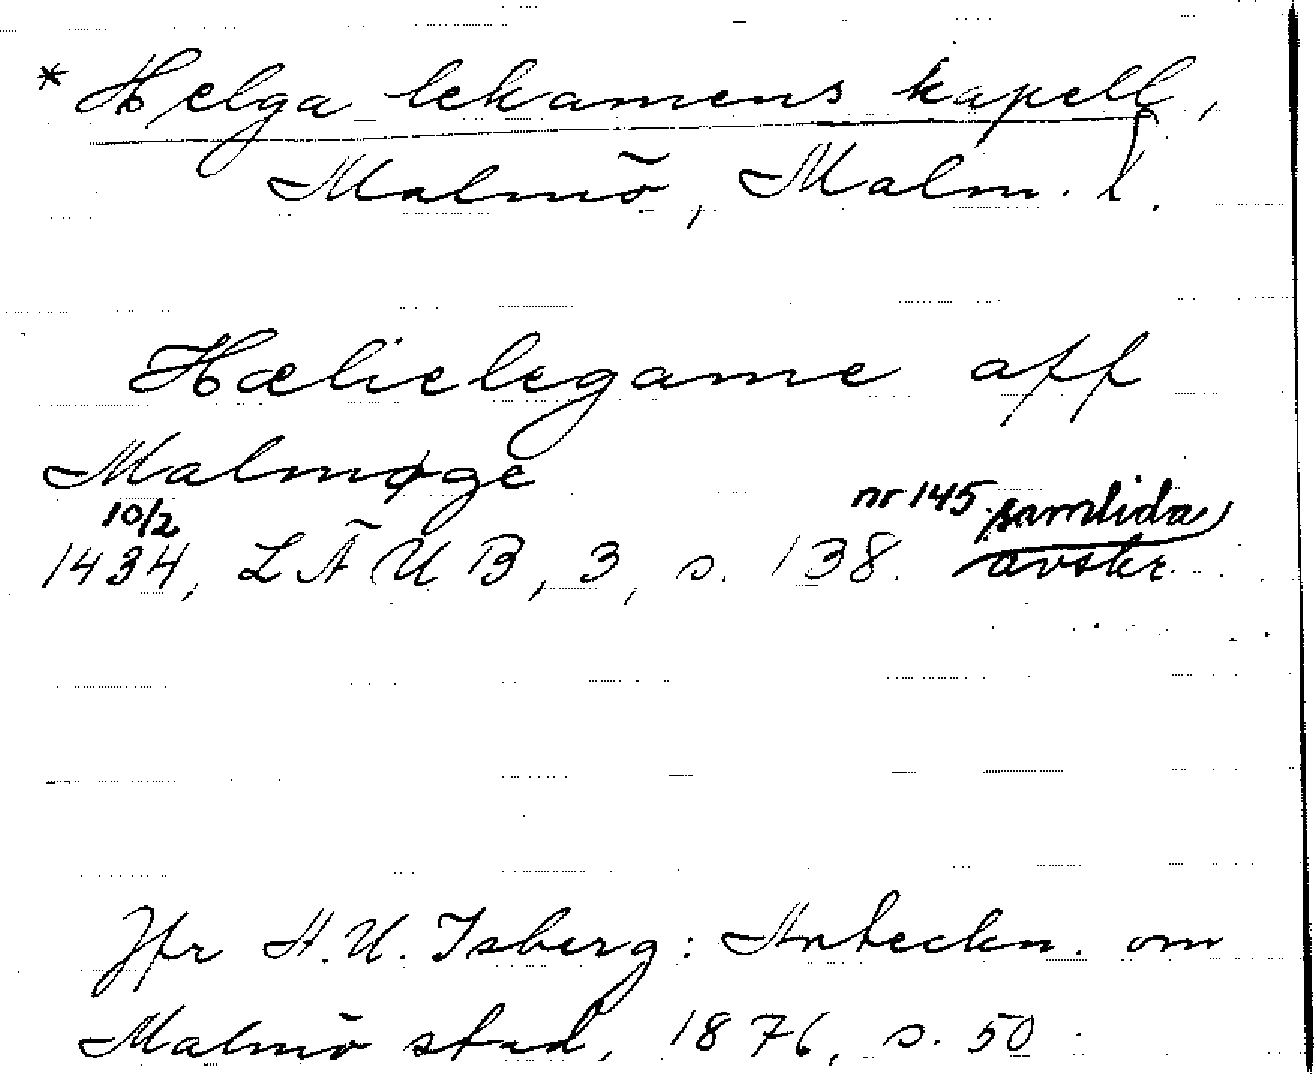 * Helga lekamens kapell,
Malmö, Malm. l.
Hælielegame aff
Malmøge
10/2 nr 145. samtida
1434, LÄUB, 3, s. 138. avskr.
Jfr A.U. Isberg: Anteckn. om
Malmö stad, 1876, s. 50